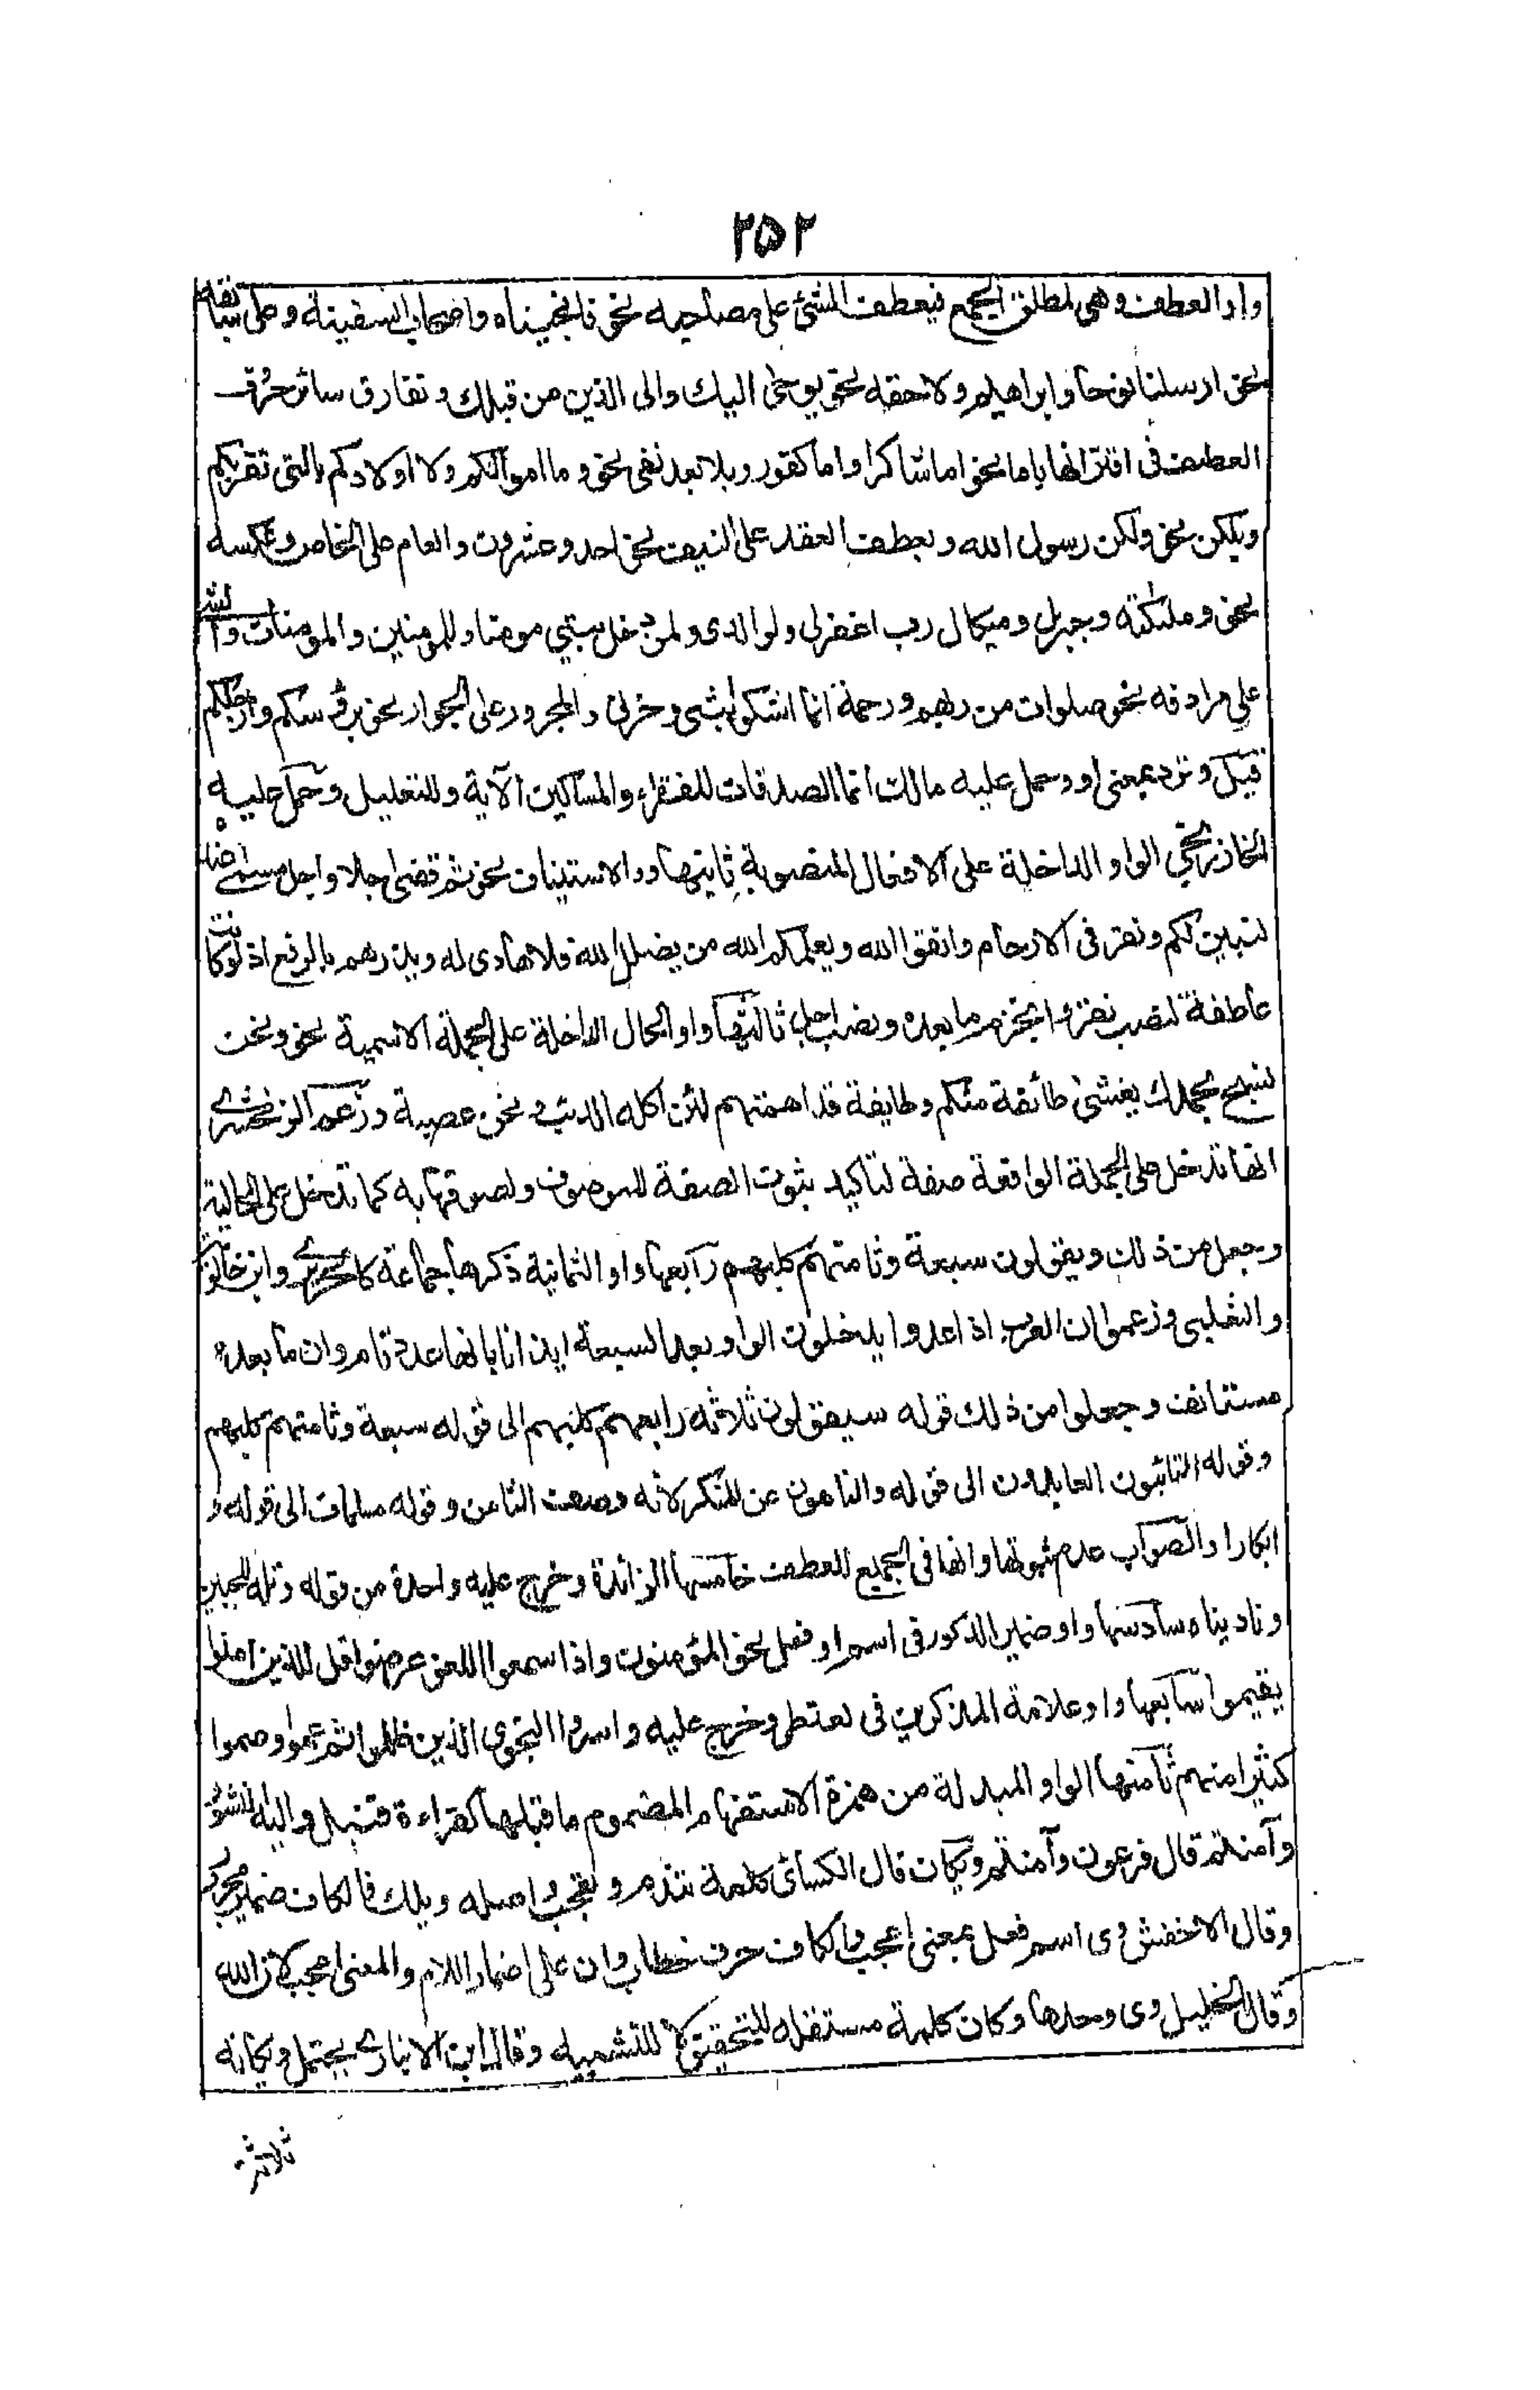 ٢٥٢
واو العطف وهى لمطلق الجمع فيعطف الشئ على مصاحبه نحو فانجيناه واصحاب السفينة وعلى سابقه
نحو ارسلنا نوحا وابراهيم ولاحقه نحو يوحى اليك والى الذين من قبلك وتفارق سائر حروف
العطف فى اقترانها باما نحو اما شاكرا واما كفورا وبلا بعد نفى نحو وما اموالكم ولا اولادكم بالتى تقربكم
وبلكن نحو ولكن رسول الله وبعطف العقد على النيف نحو احد وعشرون والعام على الخاص وعكسه
نحو وملئكته وجبريل وميكال رب اغفرلى ولوالدى ولمن دخل بيتى مومنا وللمومنين والمومنات والشئ
على مرادفه نحو صلوات من ربهم ورحمة انما اشكو بثى وحزنى والمجرور على الجوار نحو برؤسكم وارجلكم
قيل وترد بمعنى او وحمل عليه مالك انما الصدقات للفقراء والمساكين الآية وللتعليل وحمل عليه
الخارزنجى الواو الداخلة على الافعال المنصوبة ثانيها واو الاستيناف نحو ثم قضى اجلا واجل مسمى عنده
لنبين لكم ونقر فى الارحام واتقوا الله ويعلمكم الله من يضلل الله فلا هادى له ويذرهم بالرفع اذ لو كانت
عاطفة لنصب نقر وانجزم ما بعده ونصب اجل ثالثها واو الحال الداخلة على الجملة الاسمية نحو ونحن
نسبح بحمدك يغشى طائفة منكم وطايفة قد اهمتهم لئن اكله الذئب ونحن عصبة وزعم الزمخشرى
انها تدخل على الجملة الواقعة صفة لتاكيد ثبوت الصفة للموصوف ولصوقها به كما تدخل على الحالية
وجعل من ذلك ويقولون سبعة وثامنهم كلبهم رابعها واو الثمانية ذكرها جماعة كالحريرى وابن خالويه
والثعلبى وزعموا ان العرب اذا عدوا يدخلون الواو بعد السبعة ايذانا بانها عدد تام وان ما بعده
مستانف وجعلوا من ذلك قوله سيقولون ثلاثة رابعهم كلبهم الى قوله سبعة وثامنهم كلبهم
وقوله التائبون العابدون الى قوله والناهون عن المنكر لانه وصف الثامن وقوله مسلمات الى قوله و
ابكارا والصواب عدم ثبوتها وانها فى الجميع للعطف خامسها الزائدة وخرج عليه واحدة من قوله وتله للجبين
وناديناه سادسها واو ضمير الذكور فى اسم او فعل نحو المؤمنون واذا سمعوا اللغو اعرضوا قل للذين امنوا
يقيموا سابعها واو علامة المذكرين فى لغة طى وخرج عليه واسروا النجوى الذين ظلموا ثم عموا وصموا
كثير منهم ثامنها الواو المبدلة من همزة الاستفهام المضموم ما قبلها كقراءة قنبل واليه النشور
وآمنتم قال فرعون وآمنتم ويكان قال الكسائى كلمة تندم وتعجب واصله ويلك فالكاف ضمير مجرور
وقال الاخفش وى اسم فعل بمعنى اعجب والكاف حرف خطاب وان على اضمار اللام والمعنى اعجب لان الله
وقال الخليل وى وحدها وكان كلمة مستقلة للتحقيق لا للتشبيه وقال ابن الانبارى يحتمل ويكانه
ثلاثة